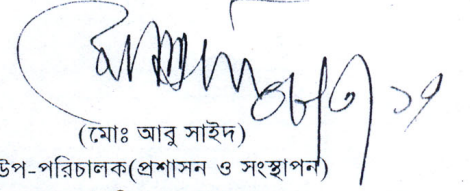 (মোঃ আবু সাইদ)
উপ-পরিচালক(প্রশাসন ও সংস্থাপন)